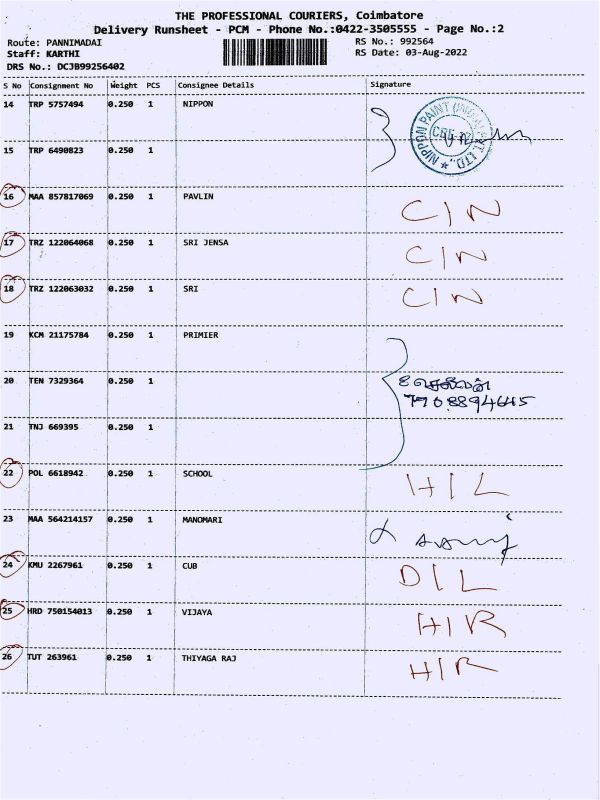 THE PROFESSIONAL COURIERS, Coimbatore
Delivery Runsheet - PCM - Phone No.:0422-3505555 - Page No.:2
Route: PANNIMADAI
RS No.: 992564
Staff: KARTHI
RS Date: 03-Aug-2022
DRS No.: DCJB99256402
S No Consignment No Weight PCS Consignee Details Signature
14 TRP 5757494 0.250 1 NIPPON
NIPPON PAINT LTD.,
15 TRP 6490823 0.250 1
16 MAA 857817069 0.250 1 PAVLIN C/N
17 TRZ 122064068 0.250 1 SRI JENSA C/N
18 TRZ 122063032 0.250 1 SRI C/N
19 KCM 21175784 0.250 1 PRIMIER
20 TEN 7329364 0.250 1
7708894645
21 TNJ 669395 0.250 1
22 POL 6618942 0.250 1 SCHOOL H/L
23 MAA 564214157 0.250 1 MANOMARI
24 KMU 2267961 0.250 1 CUB D/L
25 HRD 750154013 0.250 1 VIJAYA H/R
26 TUT 263961 0.250 1 THIYAGA RAJ H/R